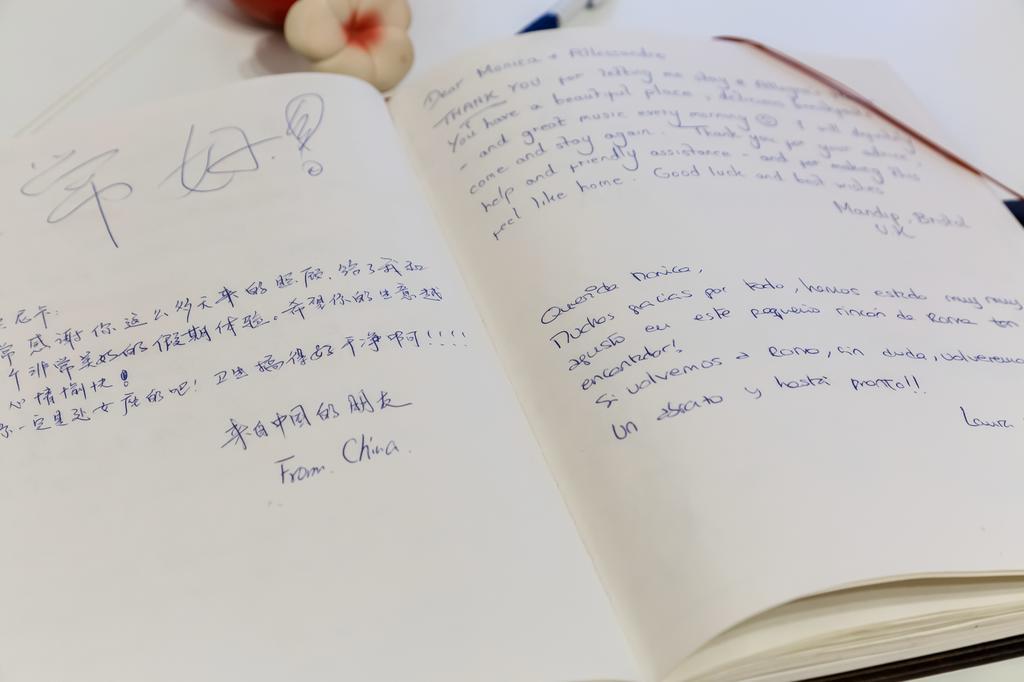 常 好!
尼卡:
常感谢你这么多天来的照顾,给了我和
个非常美好的假期体验。希望你的生意越
心情愉快!
你一定是处女座的吧!卫生搞得好干净啊!!!!
来自中国的朋友
From China.
Dear Monica + Allessandro
THANK YOU for letting me stay @
You have a beautiful place, delicious breakfast
- and great music every morning ☺ I will definitely
come and stay again. Thank you for your advice,
help and friendly assistance - and for making this
feel like home. Good luck and best wishes
Mandip, Bristol
U.K
Querida Monica,
Muchos gracias por todo, hemos estado muy muy
agusto en este pequeño rincón de Roma tan
encantador!
Si volvemos a Roma, sin duda, volveremos
Un abrazo y hasta pronto!!
Laura